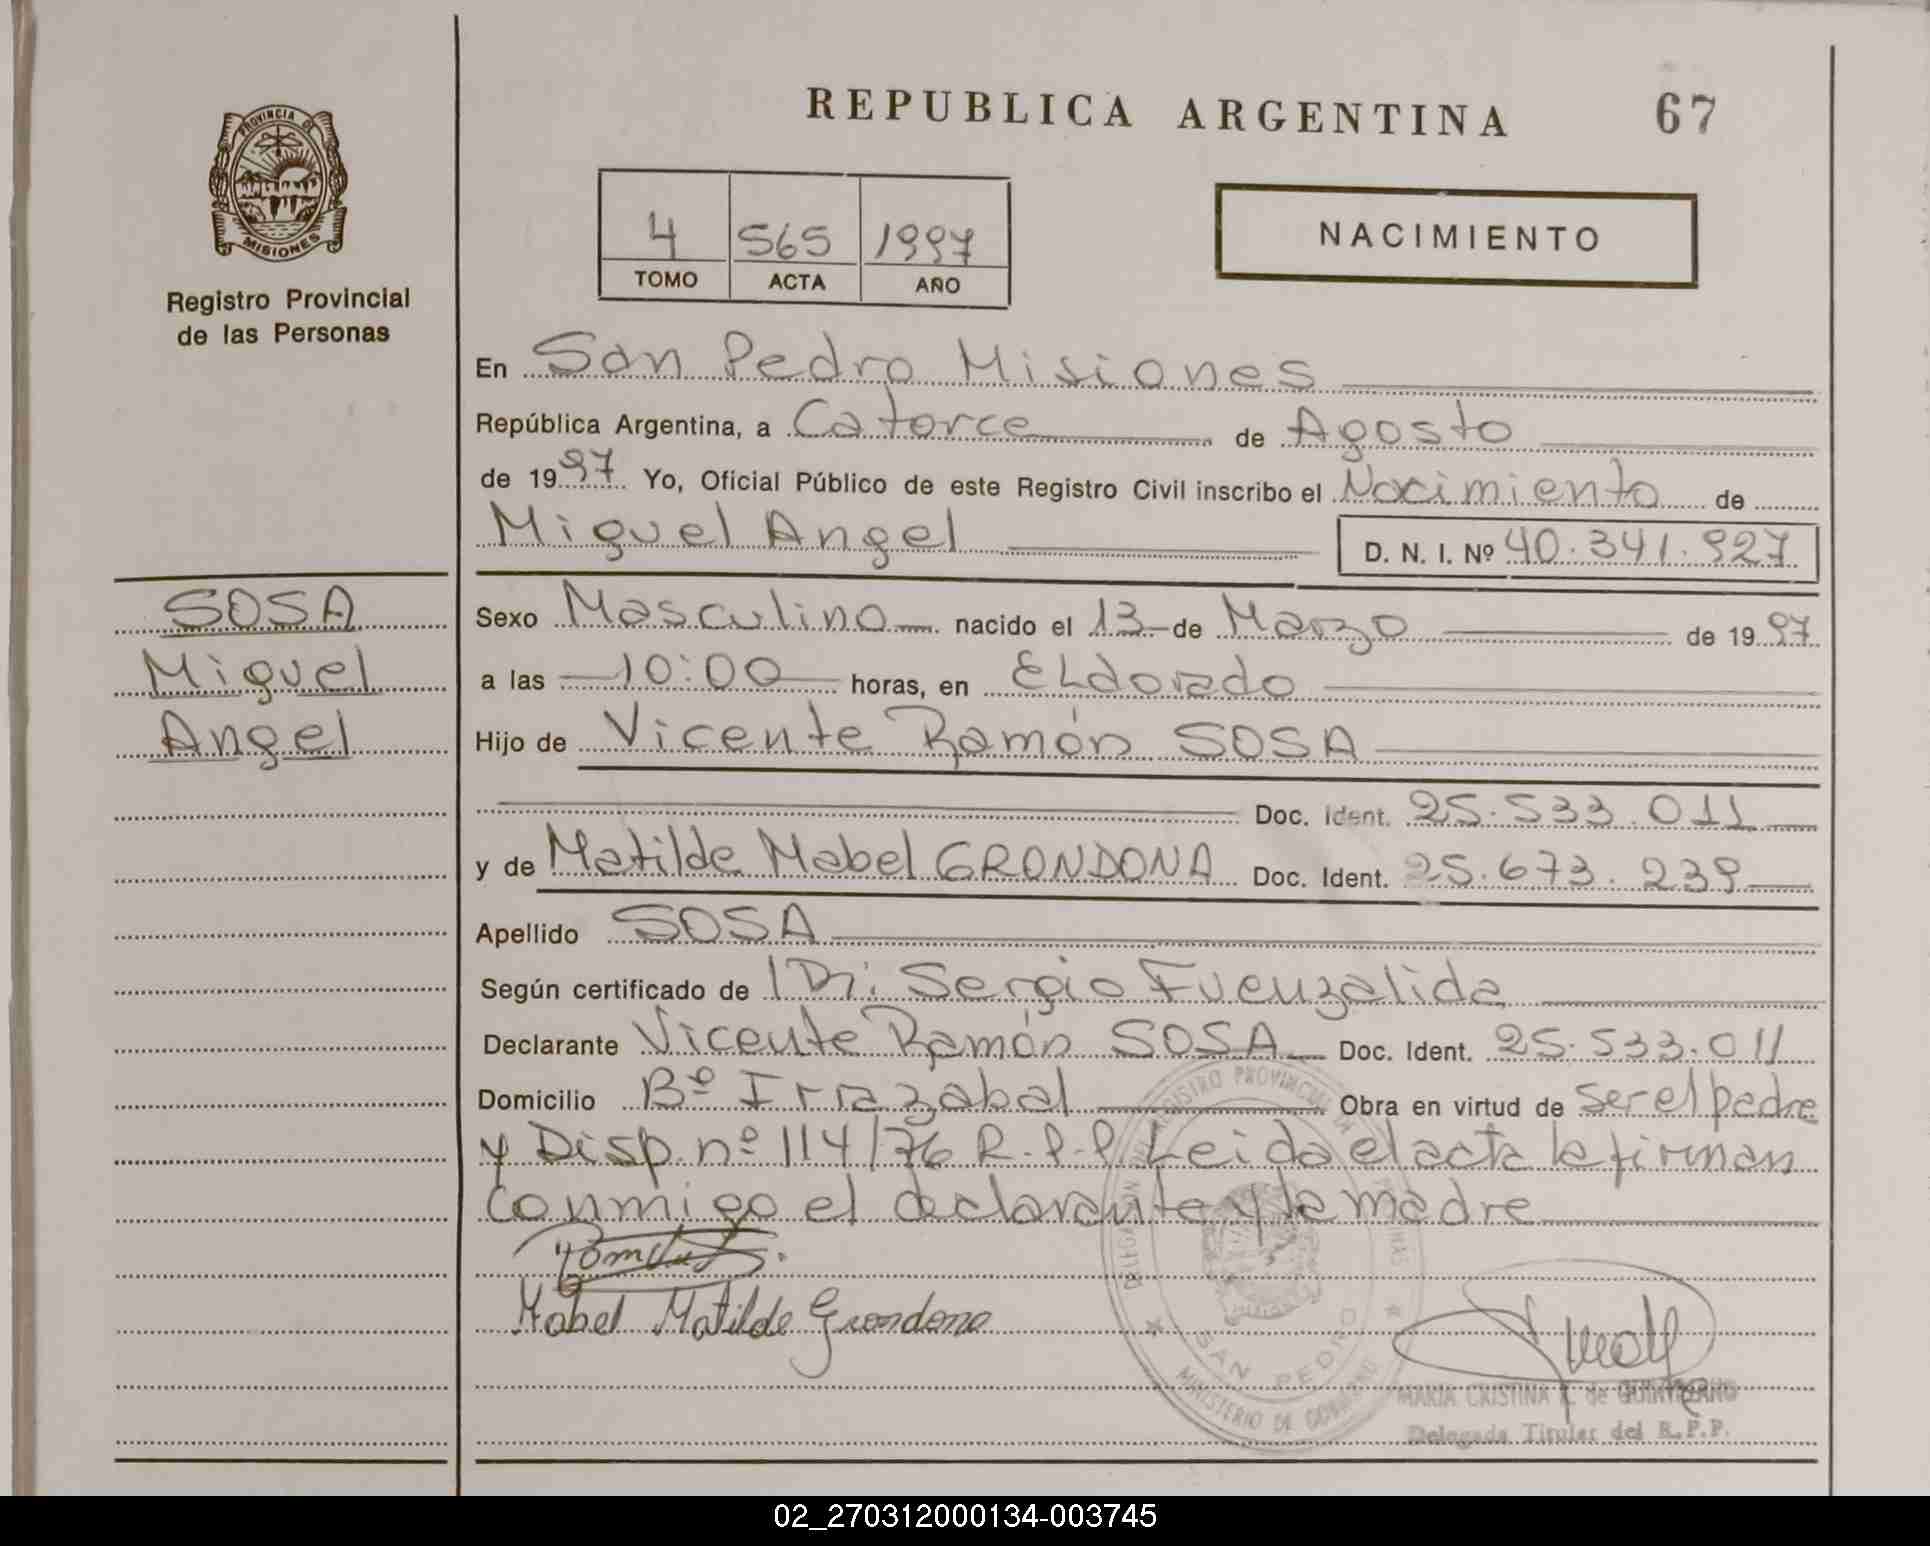 REPUBLICA ARGENTINA 67
PROVINCIA DE
MISIONES
Registro Provincial
de las Personas
4 565 1997
TOMO ACTA AÑO
NACIMIENTO
En San Pedro Misiones
República Argentina, a Catorce de Agosto
de 1997 Yo, Oficial Público de este Registro Civil inscribo el Nacimiento de
Miguel Angel D. N. I. Nº 40.341.927
SOSA
Miguel
Angel
Sexo Masculino nacido el 13 de Marzo de 1997
a las 10:00 horas, en ELdorado
Hijo de Vicente Ramón SOSA
Doc. Ident. 25.533.011
y de Matilde Mabel GRONDONA Doc. Ident. 25.673.239
Apellido SOSA
Según certificado de Dr: Sergio Fuenzalida
Declarante Vicente Ramón SOSA Doc. Ident. 25.533.011
Domicilio Bº Irrazabal Obra en virtud de ser el padre
y Disp. nº 114/76 R.P.P Leida el acta la firman
conmigo el declarante y la madre
Mabel Matilde Grondona
REGISTRO PROVINCIAL DE LAS PERSONAS
SAN PEDRO
MINISTERIO DE GOBIERNO
MARIA CRISTINA de
Delegada Titular del R.P.P.
02_270312000134-003745